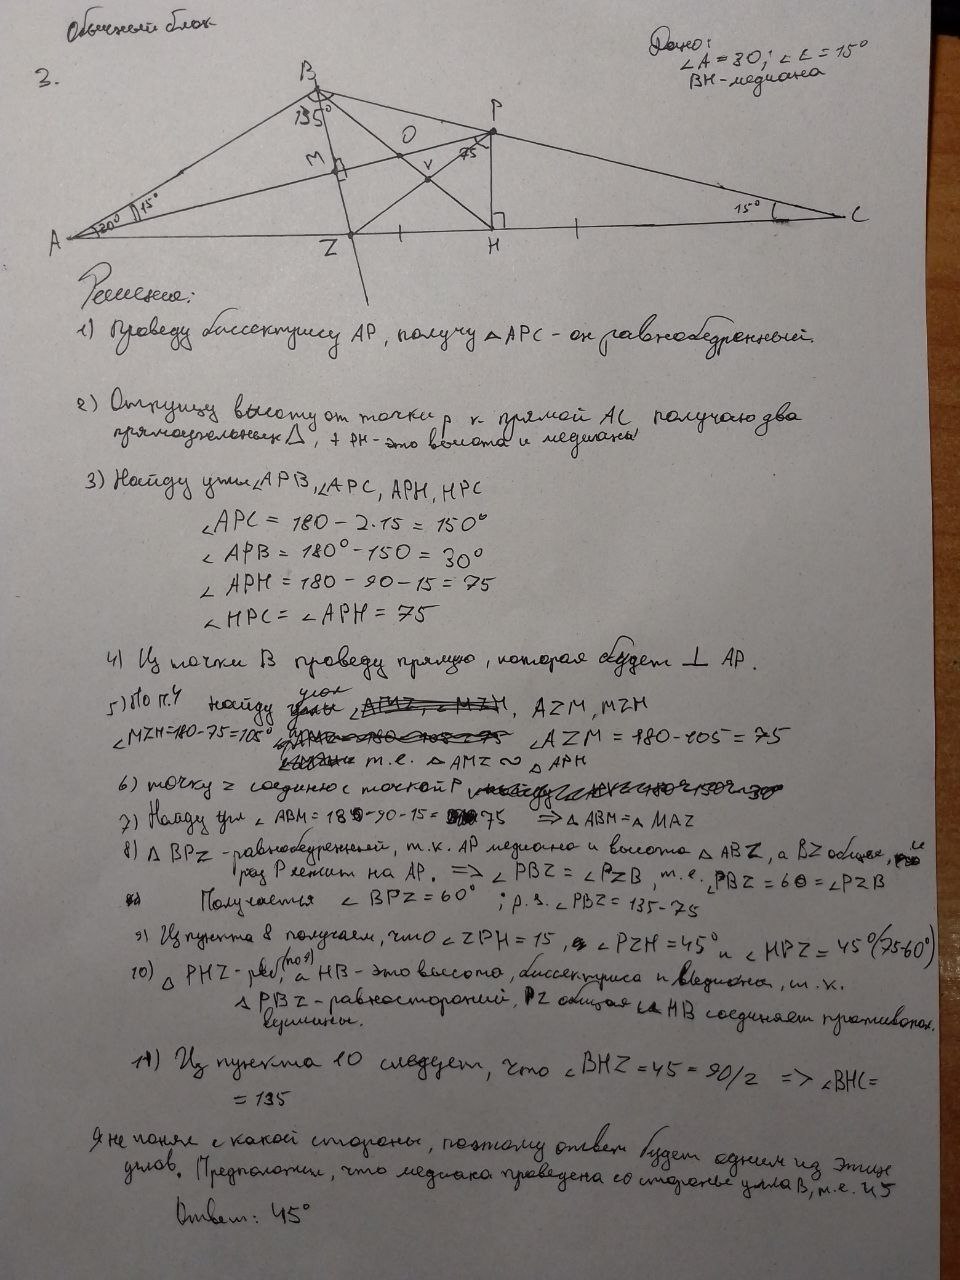 Обычный блок
Дано:
∠A = 30; ∠C = 15°
BH - медиана
3.
B
135°
P
O
M
V
75
15°
30°
A
Z
H
15°
C
Решение:
1) Проведу биссектрису AP, получу △APC - он равнобедренный.
2) Отпущу высоту от точки P к прямой AC, получаю два
прямоугольных △, + PH - это высота и медиана
3) Найду углы ∠APB, ∠APC, APH, HPC
∠APC = 180 - 2·15 = 150°
∠APB = 180° - 150 = 30°
∠APH = 180 - 90 - 15 = 75
∠HPC = ∠APH = 75
4) Из точки B проведу прямую, которая будет ⊥ AP.
5) По п.4 найду угол AZM, MZH
∠MZH = 180 - 75 = 105° ∠AZM = 180 - 105 = 75
т.е. △AMZ ∾ △APH
6) точку Z соединю с точкой P
7) Найду угл ∠ABM = 180 - 90 - 15 = 75 => △ABM = △MAZ
8) △BPZ - равнобедренный, т.к. AP медиана и высота △ABZ, а BZ общее, и
раз P лежит на AP. => ∠PBZ = ∠PZB, т.е. ∠PBZ = 60 = ∠PZB
Получается ∠BPZ = 60° ; ∠PBZ = 135 - 75
9) Из пункта 8 получаем, что ∠ZPH = 15, ∠PZH = 45° и ∠HPZ = 45° (75-60°)
10) △PHZ - рвб, (по 9) а HB - это высота, биссектриса и медиана, т.к.
△PBZ - равносторонний, PZ общая и HB соединяет противопол.
вершины.
11) Из пункта 10 следует, что ∠BHZ = 45 = 90/2 => ∠BHC =
= 135
Я не понял с какой стороны, поэтому ответ будет одним из этих
углов. Предположим, что медиана проведена со стороны угла B, т.е. 45
Ответ: 45°